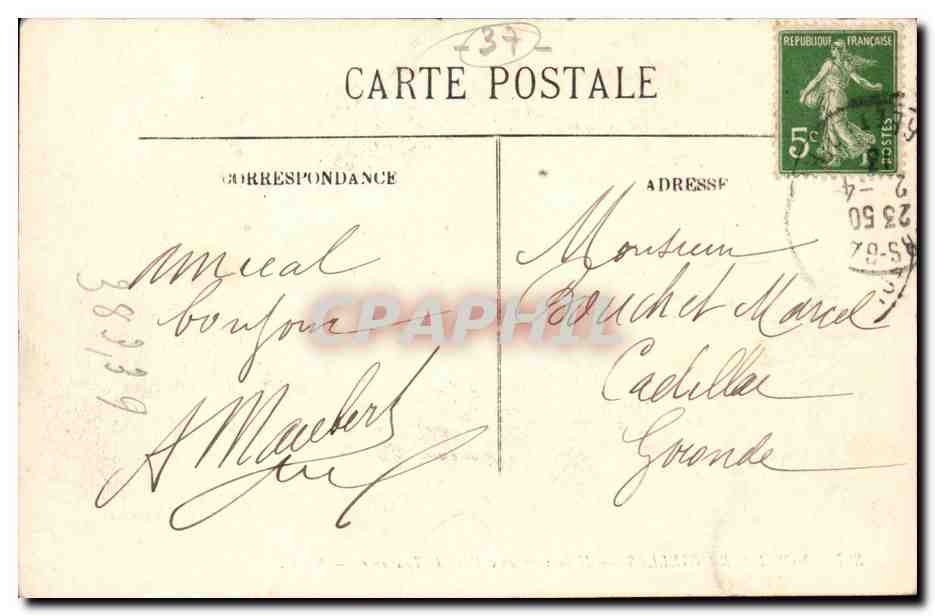 - 37 -
CARTE POSTALE
REPUBLIQUE FRANÇAISE
5c
POSTES
CORRESPONDANCE
ADRESSE
2 - 4
23 50
Amical
bonjour
A Maubert
Monsieur
Bouchet Marcel
Cadillac
Gironde
38339
CPAPHIL